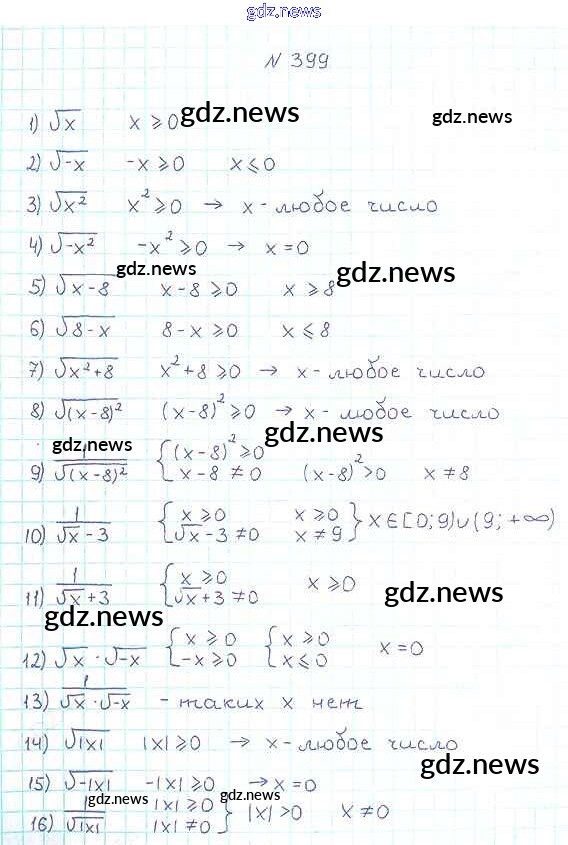 gdz.news
N 399
gdz.news gdz.news
1) √x x ≥ 0
2) √-x -x ≥ 0 x ≤ 0
3) √x² x² ≥ 0 → x - любое число
4) √-x² -x² ≥ 0 → x = 0
gdz.news gdz.news
5) √x - 8 x - 8 ≥ 0 x ≥ 8
6) √8 - x 8 - x ≥ 0 x ≤ 8
7) √x² + 8 x² + 8 ≥ 0 → x - любое число
8) √(x - 8)² (x - 8)² ≥ 0 → x - любое число
gdz.news gdz.news
9) 1/√(x - 8)² { (x - 8)² ≥ 0 x - 8 ≠ 0 (x - 8)² > 0 x ≠ 8
10) 1/√x - 3 { x ≥ 0 √x - 3 ≠ 0 x ≥ 0 x ≠ 9 } x ∈ [0; 9) ∪ (9; +∞)
11) 1/√x + 3 { x ≥ 0 √x + 3 ≠ 0 x ≥ 0
gdz.news gdz.news
12) √x · √-x { x ≥ 0 -x ≥ 0 { x ≥ 0 x ≤ 0 x = 0
13) 1/√x · √-x - таких x нет
14) √|x| |x| ≥ 0 → x - любое число
gdz.news
15) √-|x| -|x| ≥ 0 → x = 0
gdz.news gdz.news
16) 1/√|x| |x| ≥ 0 |x| ≠ 0 } |x| > 0 x ≠ 0